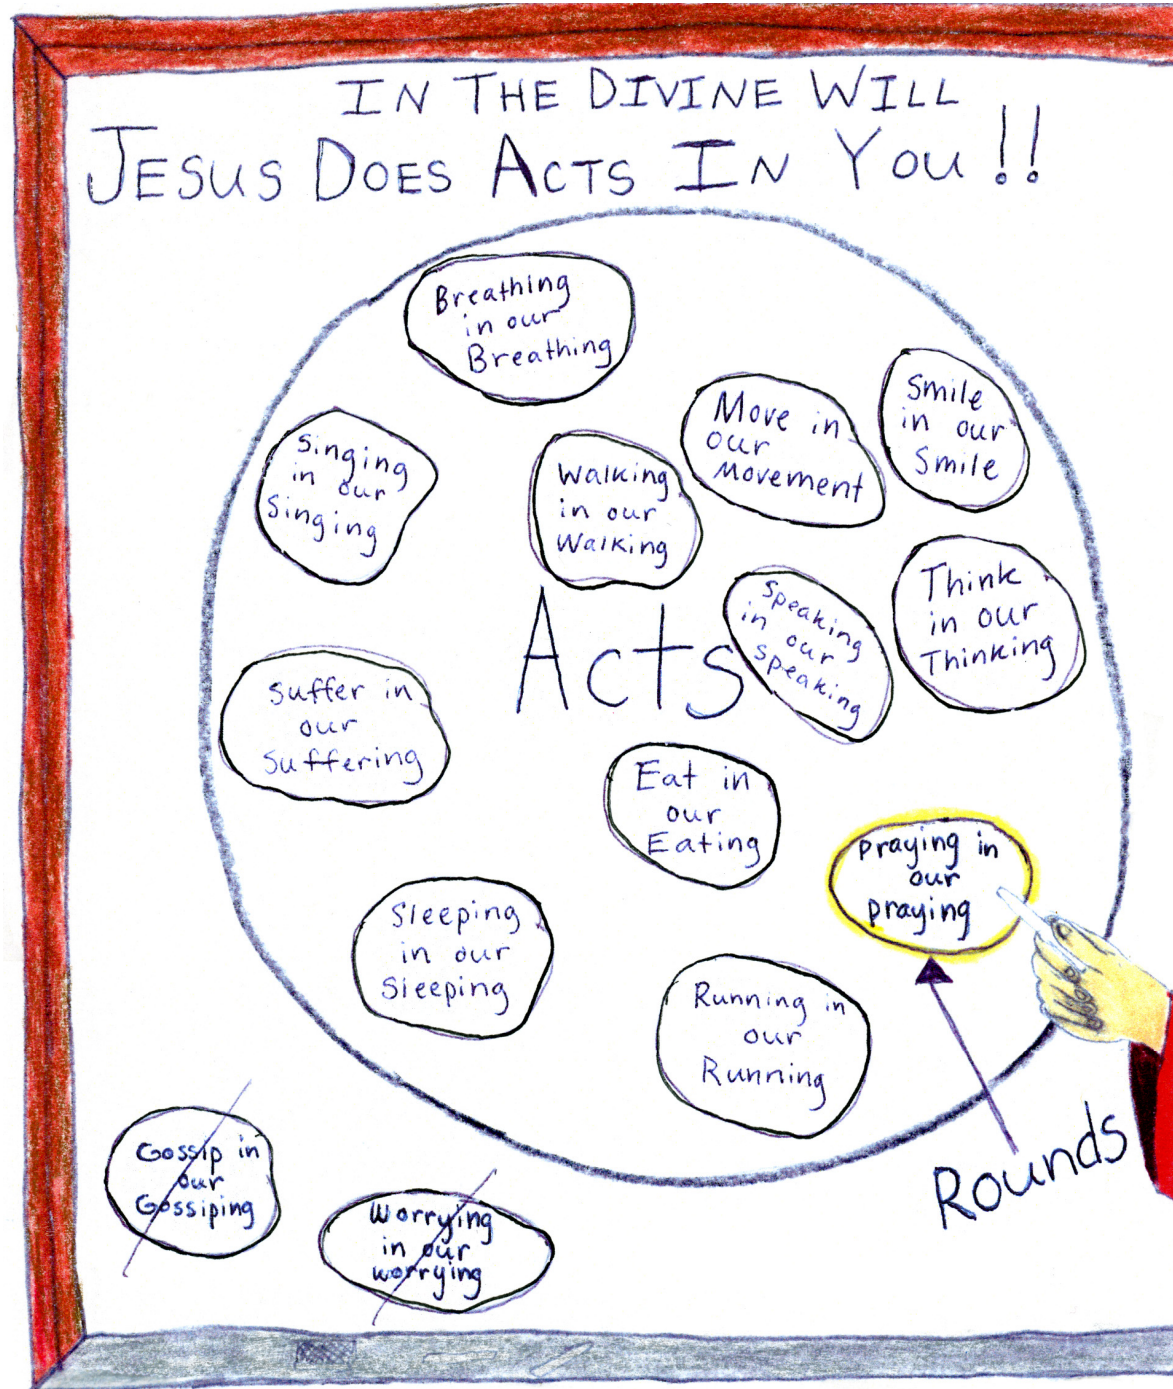 IN THE DIVINE WILL
JESUS DOES ACTS IN YOU!!
Breathing
in our
Breathing
Smile
in our
Smile
Move in
our
Movement
Singing
in our
Singing
Walking
in our
Walking
Think
in our
Thinking
Speaking
in our
speaking
Acts
Suffer in
our
Suffering
Eat in
our
Eating
praying in
our
praying
Sleeping
in our
Sleeping
Running in
our
Running
Rounds
Gossip in
our
Gossiping
Worrying
in our
worrying